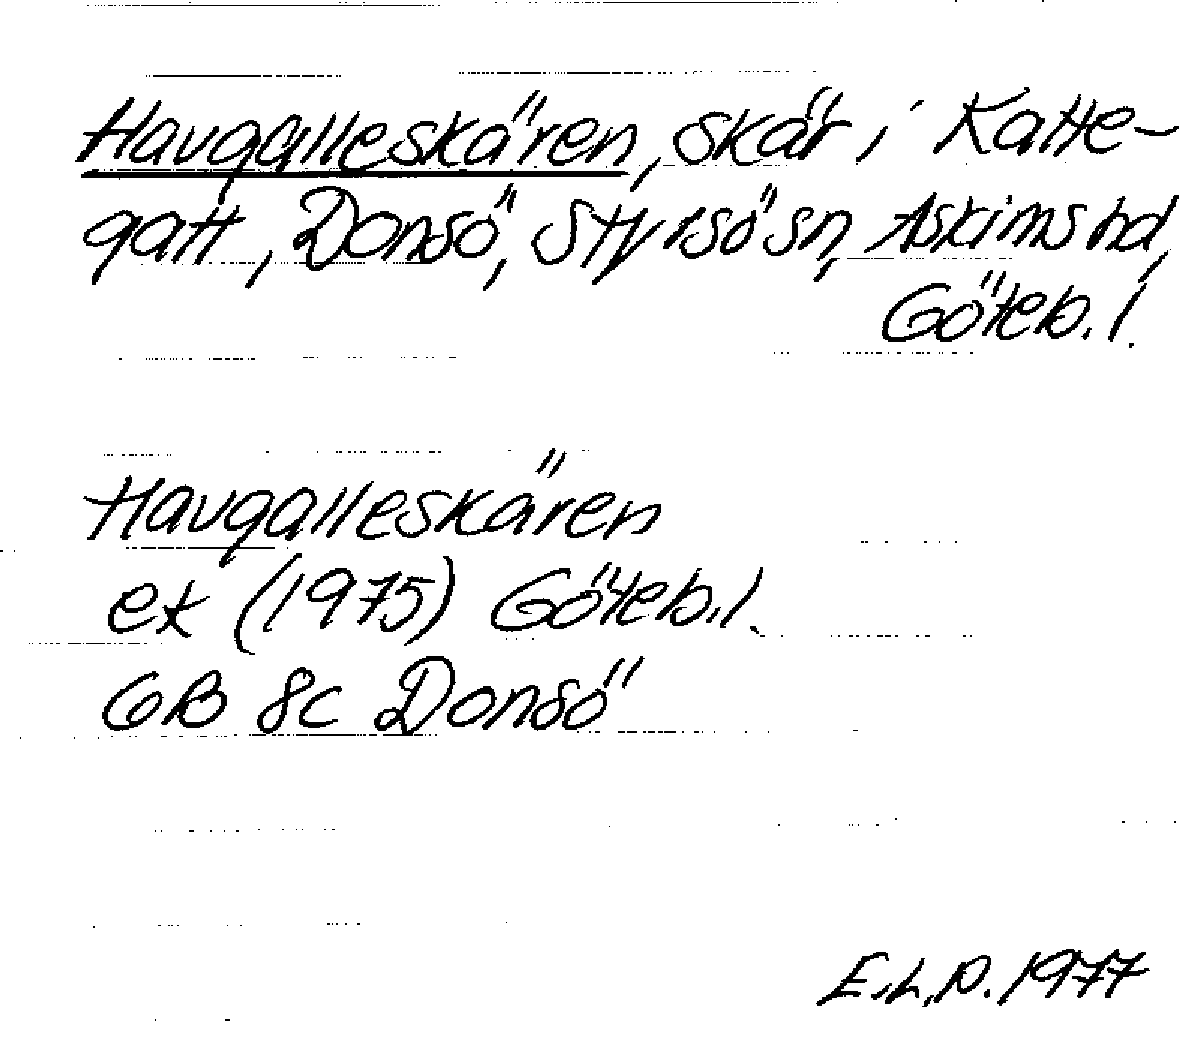 Havgalleskären, skär i Katte-
gatt, Donsö, Styrsö sn, Askims hd,
Göteb. l.
Havgalleskären
ek (1975) Göteb. l.
GB 8c Donsö
E.L.P. 1977